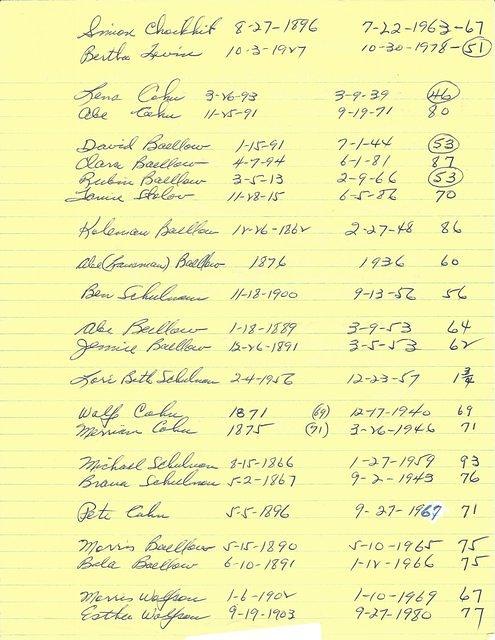 Simon Chackkit 8-27-1896 7-22-1963-67
Bertha Levin 10-3-1927 10-30-1978-51
Lena Cohn 3-26-93 3-9-39 46
Abe Cohn 11-25-91 9-19-71 80
David Baellow 1-15-91 7-1-44 53
Clara Baellow 4-7-94 6-1-81 87
Rubin Baellow 3-5-13 2-9-66 53
11-28-15 6-5-86 70
Koleman Baellow 12-26-1862 2-27-48 86
Abe Baellow 1876 1936 60
Ben Schulman 11-18-1900 9-13-56 56
Abe Baellow 1-18-1889 3-9-53 64
Jennie Baellow 12-26-1891 3-5-53 62
Lori Beth Schulman 2-4-1956 12-23-57 1 3/4
Wolf Cohn 1871 (69) 12-17-1940 69
Merriam Cohn 1875 (71) 3-26-1946 71
Michael Schulman 8-15-1866 1-27-1959 93
Brana Schulman 5-2-1867 9-2-1943 76
Pete Cohn 5-5-1896 9-27-1967 71
Morris Baellow 5-15-1890 5-10-1965 75
Bela Baellow 6-10-1891 1-12-1966 75
Morris Wolfson 1-6-1902 1-10-1969 67
Esther Wolfson 9-19-1903 9-27-1980 77